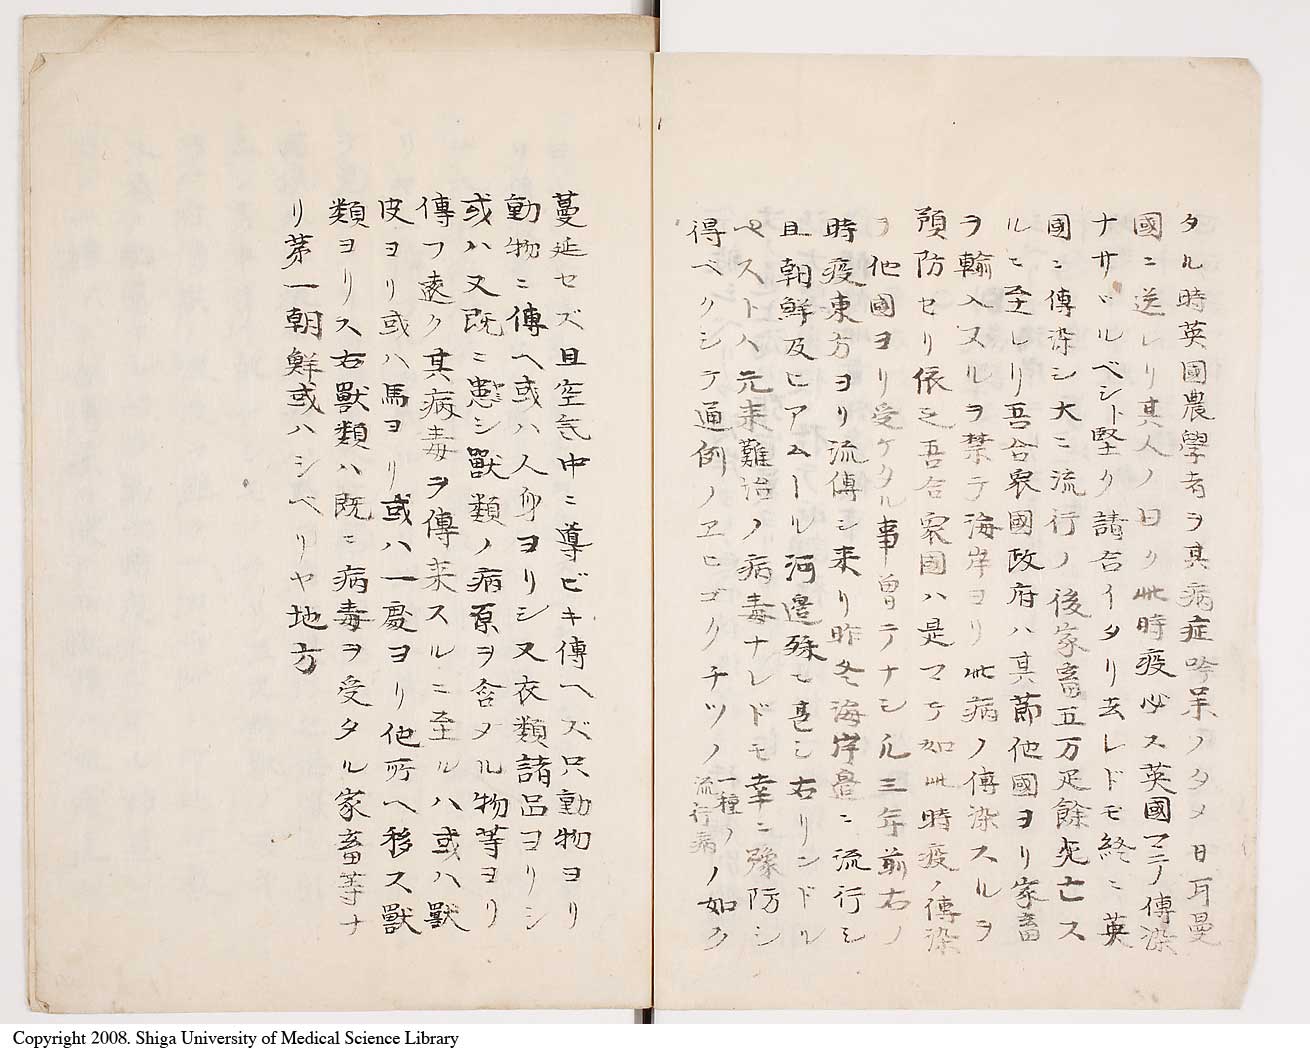 タル時英國農學者ヲ其病症吟味ノタメ日耳曼
國ニ送レリ其人ノ曰ク此時疫必ス英國マテ傳染
ナサヾルベシト堅ク請合イタリ去レドモ終ニ英
國ニ傳染シ大ニ流行ノ後家畜五万疋餘死亡ス
ルニ至レリ吾合衆國政府ハ其節他國ヨリ家畜
ヲ輸入スルヲ禁テ海岸ヨリ此病ノ傳染スルヲ
預防セリ依之吾合衆國ハ是マテ如此時疫ノ傳染
ヲ他國ヨリ受ケタル事曽テナシ凡三年前右ノ
時疫東方ヨリ流傳シ来リ昨冬海岸邉ニ流行シ
且朝鮮及ヒアムール河邉殊ニ甚シ右リンドル
ペストハ元来難治ノ病毒ナレドモ幸ニ豫防シ
得ベクシテ通例ノヱピゴクチツノ一種ノ流行病ノ如ク
蔓延セズ且空気中ニ導ビキ傳ヘズ只動物ヨリ
動物ニ傳ヘ或ハ人身ヨリシ又衣類諸品ヨリシ
或ハ又既ニ患シ獸類ノ病原ヲ含メル物等ヨリ
傳フ遠ク其病毒ヲ傳来スルニ至ルハ或ハ獸
皮ヨリ或ハ馬ヨリ或ハ一處ヨリ他所ヘ移ス獸
類ヨリス右獸類ハ既ニ病毒ヲ受タル家畜等ナ
リ第一朝鮮或ハシベリヤ地方
Copyright 2008. Shiga University of Medical Science Library